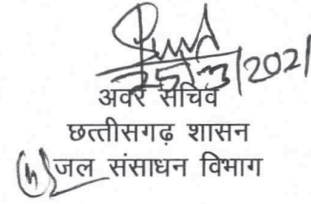 25/3/2021
अवर सचिव
छत्तीसगढ़ शासन
जल संसाधन विभाग